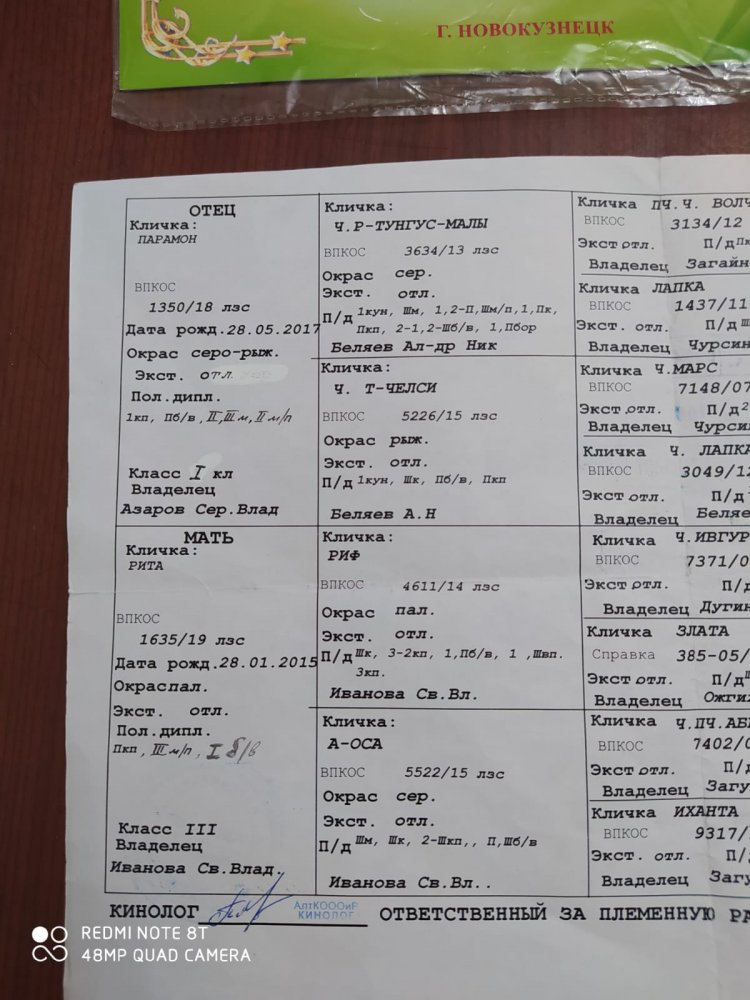 Г. НОВОКУЗНЕЦК
ОТЕЦ
Кличка:
ПАРАМОН
ВПКОС
1350/18 лзс
Дата рожд.28.05.2017
Окрас серо-рыж.
Экст. отл.
Пол.дипл.
1кп, Пб/в, II,IIIм, IIм/п
Класс I кл
Владелец
Азаров Сер.Влад
МАТЬ
Кличка:
РИТА
ВПКОС
1635/19 лзс
Дата рожд.28.01.2015
Окраспал.
Экст. отл.
Пол.дипл.
Пкп, IIIм/п, I б/в
Класс III
Владелец
Иванова Св.Влад.
Кличка:
Ч.Р-ТУНГУС-МАЛЫ
ВПКОС 3634/13 лзс
Окрас сер.
Экст. отл.
П/д 1кун, Шм, 1,2-П,Шм/п,1,Пк,
Пкп, 2-1,2-Шб/в, 1,Пбор
Беляев Ал-др Ник
Кличка:
Ч. Т-ЧЕЛСИ
ВПКОС 5226/15 лзс
Окрас рыж.
Экст. отл.
П/д 1кун, Шк, Пб/в, Пкп
Беляев А.Н
Кличка:
РИФ
ВПКОС 4611/14 лзс
Окрас пал.
Экст. отл.
П/д Шк, 3-2кп, 1,Пб/в, 1 ,Швп.
3кп.
Иванова Св.Вл.
Кличка:
А-ОСА
ВПКОС 5522/15 лзс
Окрас сер.
Экст. отл.
П/д Шм, Шк, 2-Шкп,, П,Шб/в
Иванова Св.Вл..
Кличка ПЧ.Ч. ВОЛЧ
ВПКОС 3134/12
Экст отл. П/д Пк
Владелец Загайн
Кличка ЛАПКА
ВПКОС 1437/11
Экст отл. П/д Ш
Владелец Чурсин
Кличка Ч.МАРС
ВПКОС 7148/07
Экст отл. П/д 2
Владелец Чурсин
Кличка Ч. ЛАПКА
ВПКОС 3049/12
Экст отл. П/д
Владелец Беляе
Кличка Ч.ИВГУР
ВПКОС 7371/0
Экст отл. П/д
Владелец Дугин
Кличка ЗЛАТА
Справка 385-05/
Экст отл. П/д Ш
Владелец Ожги
Кличка Ч.ПЧ.АБ
ВПКОС 7402/0
Экст отл. П/д
Владелец Загу
Кличка ИХАНТА
ВПКОС 9317/
Экст. отл. П/
Владелец Загу
КИНОЛОГ АлтКОООиР КИНОЛОГ ОТВЕТСТВЕННЫЙ ЗА ПЛЕМЕННУЮ РА
REDMI NOTE 8T
48MP QUAD CAMERA